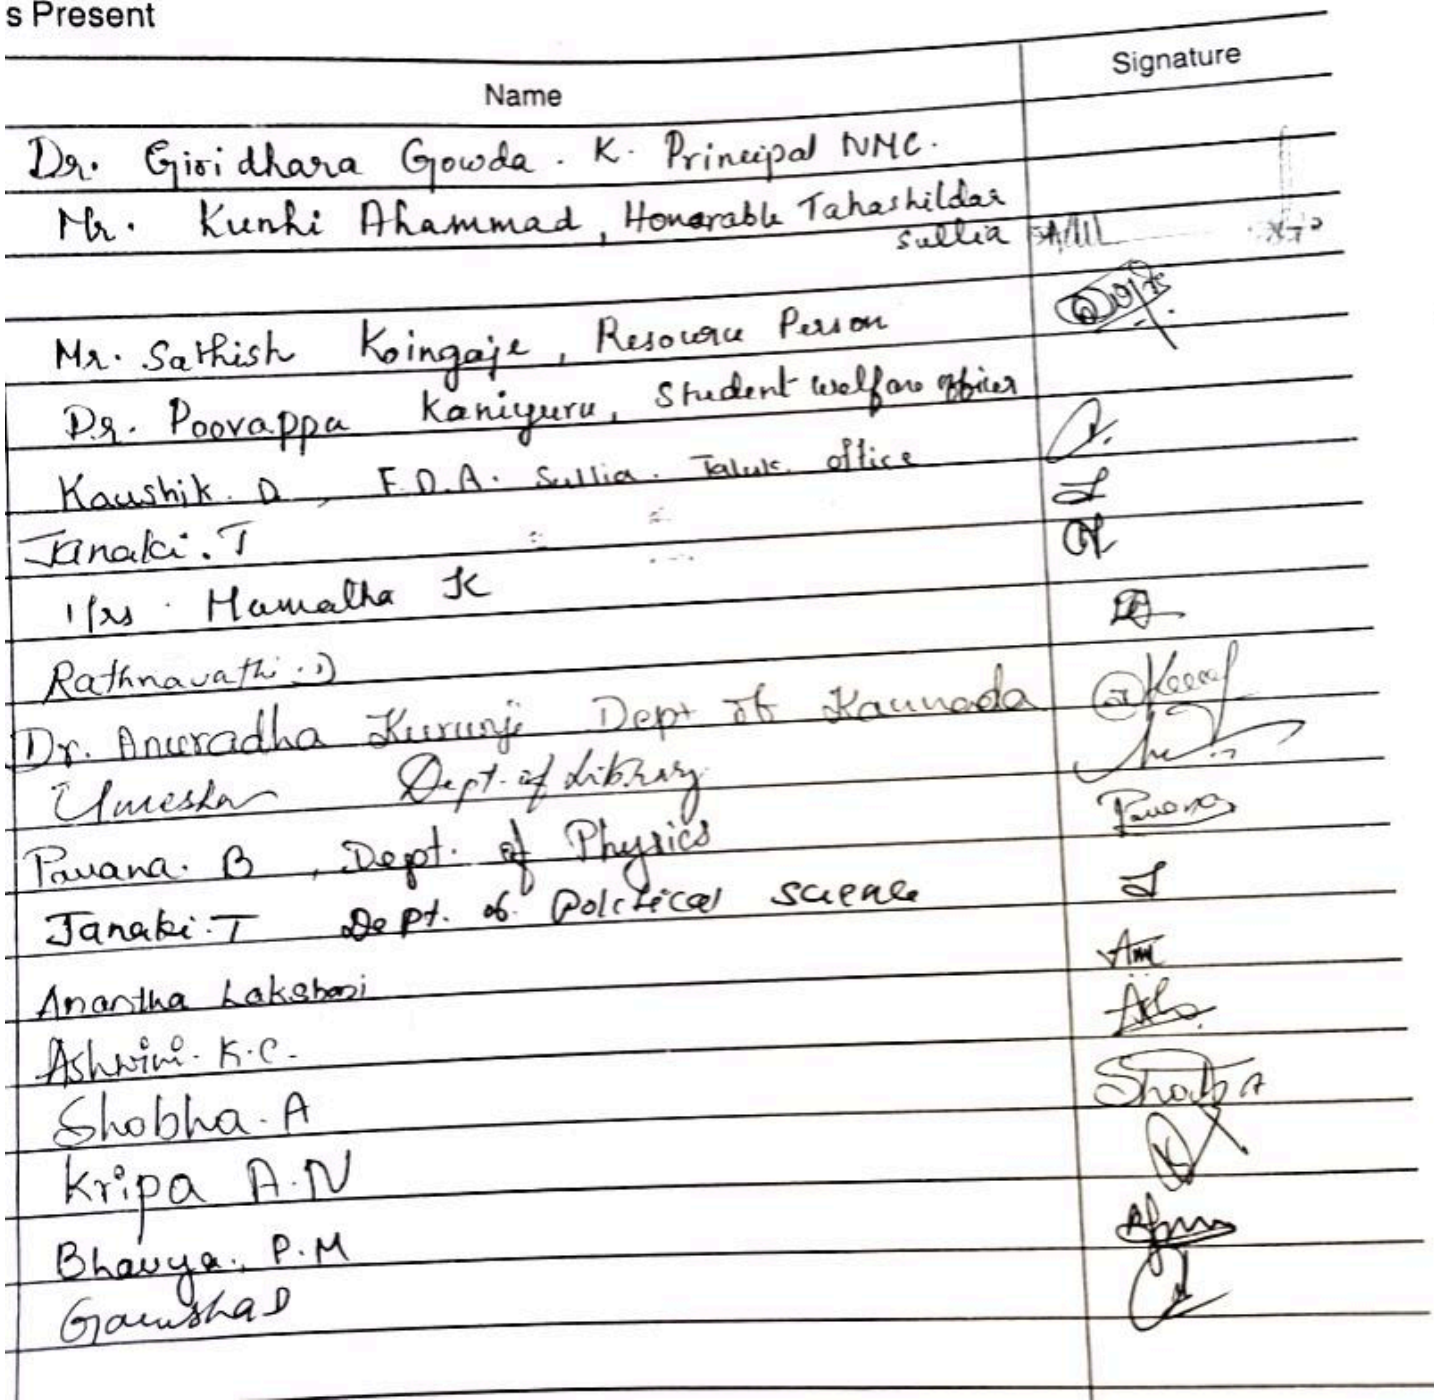 s Present
Name Signature
Dr. Giridhara Gowda. K. Principal NMC.
Mr. Kunhi Ahammad, Honorable Tahashildar
Sullia
Mr. Sathish Koingaje, Resource Person
Dr. Poovappa Kaniyuru, Student welfare officer
Kaushik. D, F.D.A. Sullia. Taluk office
Janaki. T
Mrs. Mamatha K
Rathnavathi
Dr. Anuradha Kurunji Dept of Kannada
Umesh Dept. of Library
Pavana. B, Dept. of Physics Pavana
Janaki. T Dept. of Political science
Anantha Lakshmi
Ashwini. K.C.
Shobha. A
Kripa A.N
Bhavya. P.M